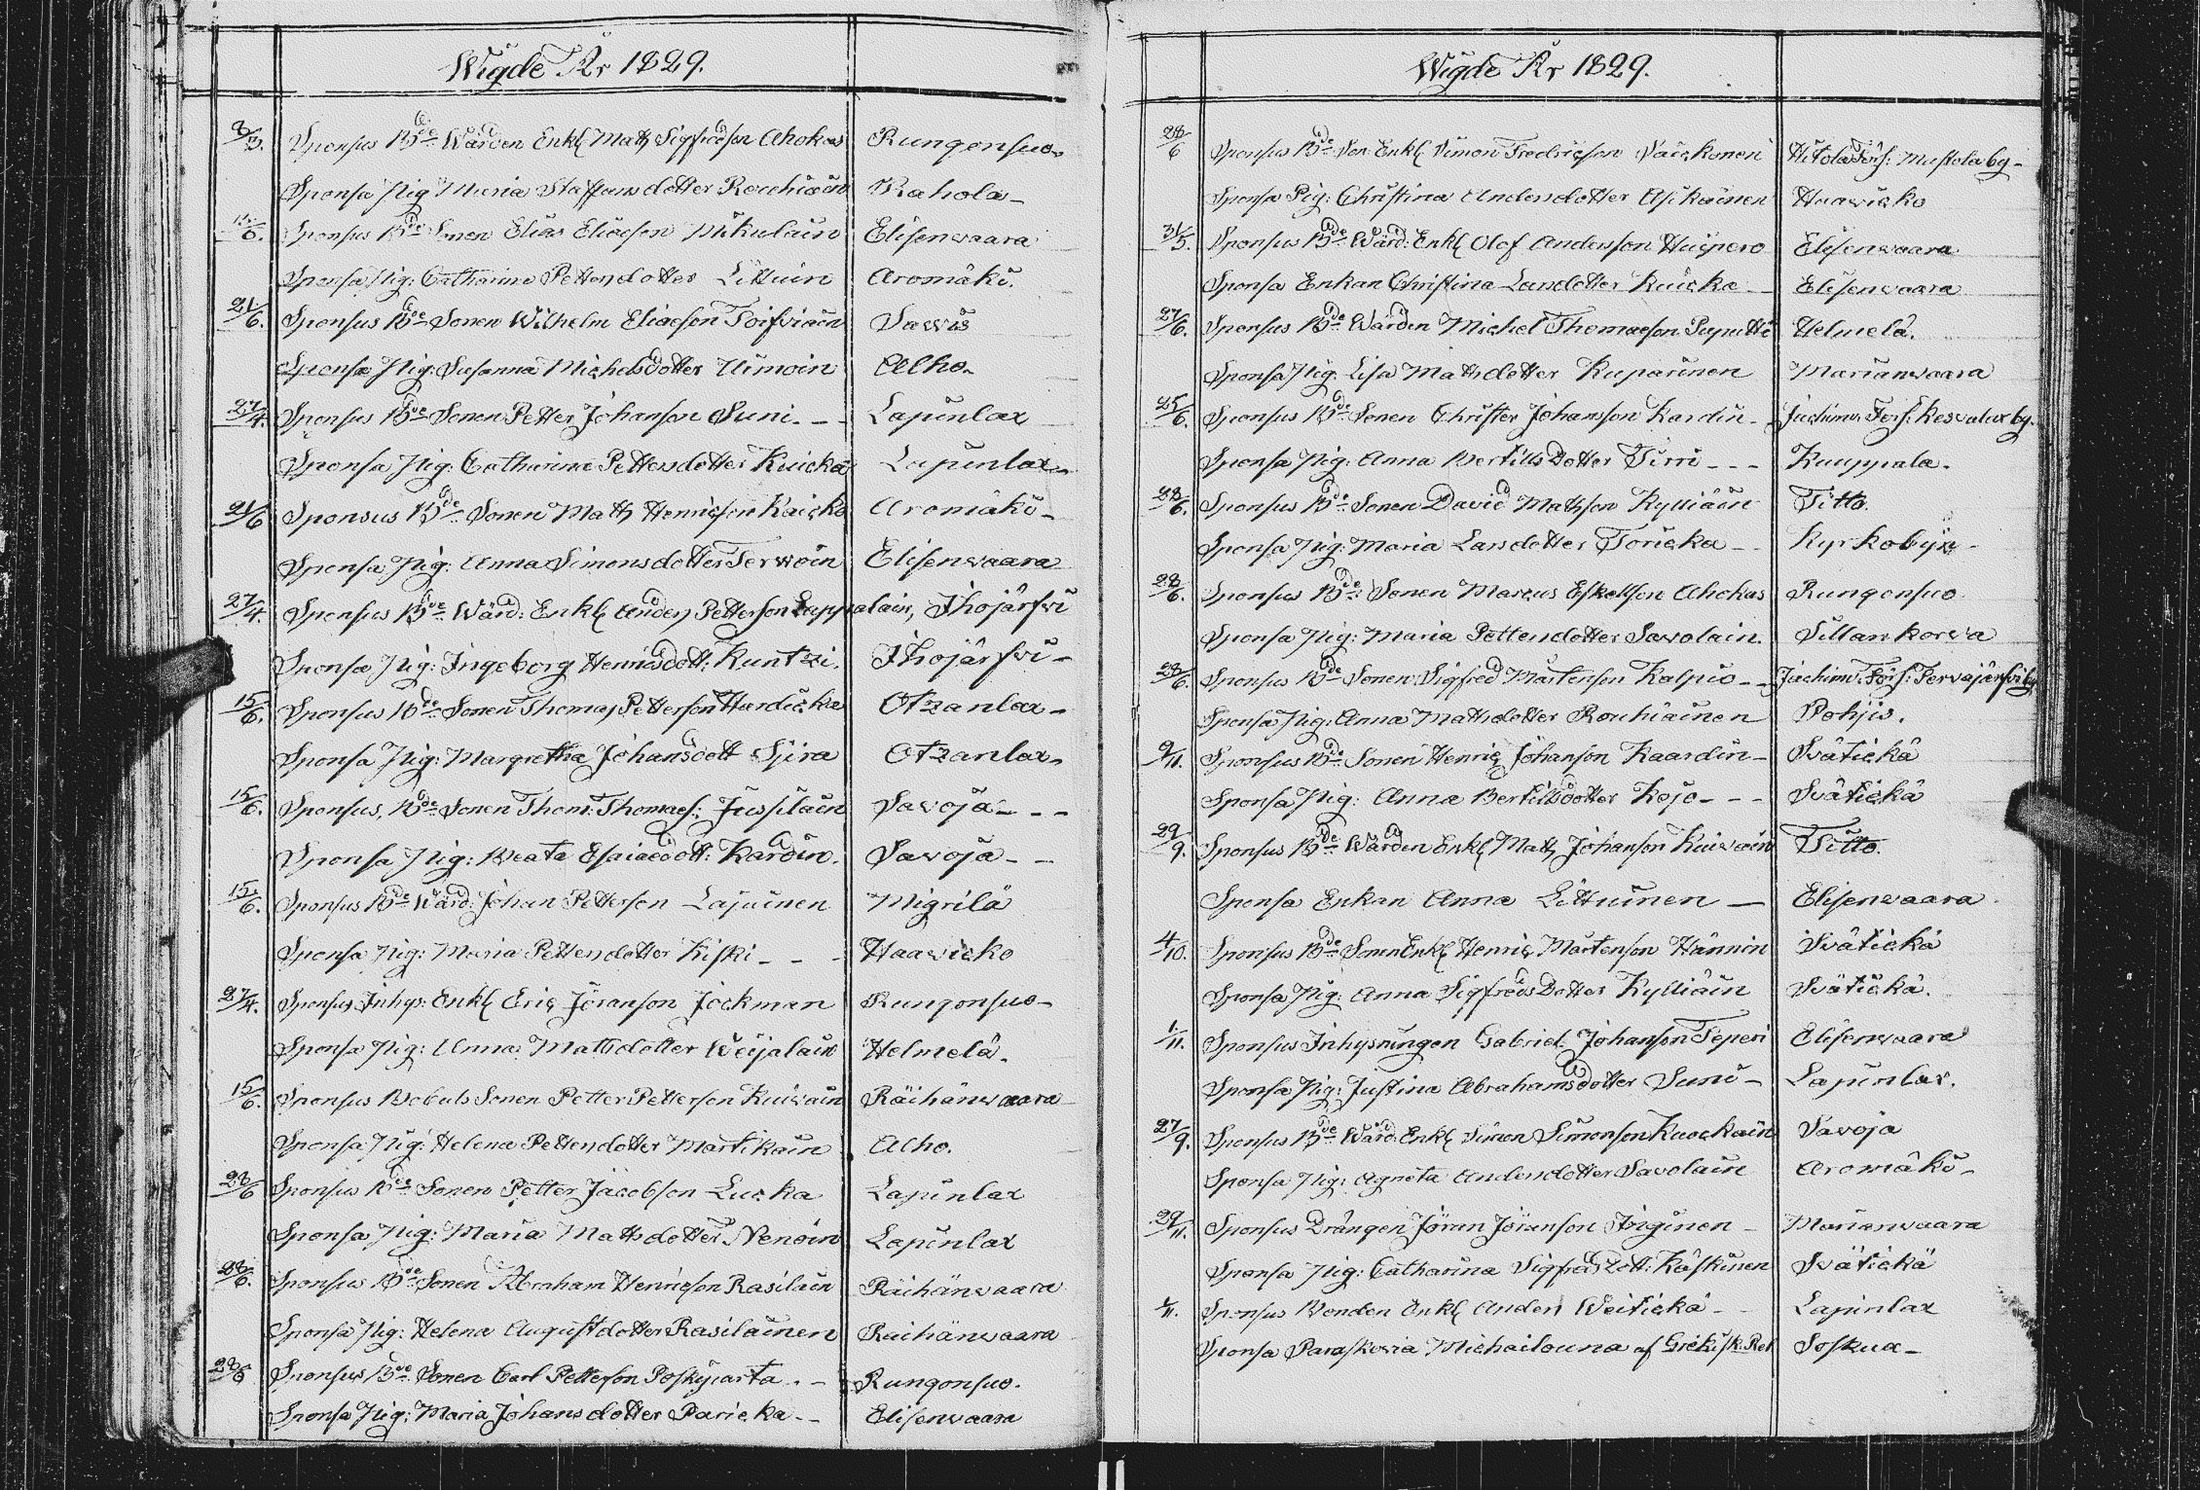 Wigde År 1829.
8/3. Sponsus Bde Wärden Enkl Matts Sigfredsson Ahokas Rungonsuo
Sponsa Pig: Maria Staffansdotter Rouhiain Rahola
Sponsus Bde Sonen Elias Eliaeson Mikulain Elisenwaara
Sponsa Pig: Catharina Pettersdotter Littuin Aromäki.
21/6. Sponsus Bde Sonen Wilhelm Eliaeson Toifviain Sawis
Sponsa Pig: Susanna Michelsdotter Uimoin Alho
27/4. Sponsus Bde Sonen Petter Johanson Suni Lapinlax
Sponsa Pig: Catharina Pettersdotter Kuicka Lapinlax
21/6 Sponsus Bde Sonen Matts Henricson Kaicko Aromäki
Sponsa Pig: Anna Simonsdotter Terwoin Elisenwaara
27/4. Sponsus Bde Wärd: Enkl Anders Petterson Lappalain, Ihojärfvi
Sponsa Pig: Ingeborg Henricsdott: Kuntzi. Ihojärfvi
15/6. Sponsus Bde Sonen Thomas Petterson Hardicka Otzanlax
Sponsa Pig: Margretha Johansdott Sjira Otzanlax
15/6. Sponsus, Bde Sonen Thom: Thomaes: Jussilain Savoja
Sponsa Pig: Beata Esaiaedott: Kardin. Savoja
15/6. Sponsus Bde Wärd: Johan Petterson Lajuinen Migrilä
Sponsa Pig: Maria Pettersdotter Kiski Haawicko
27/4. Sponsus Inhys: Enkl Eric Jöranson Jockman Rungonsuo
Sponsa Pig: Anna Mattsdotter Weijalain Helmelä.
15/6. Sponsus Bobuls Sonen Petter Petterson Kuiwain Räihänwaara
Sponsa Pig: Helena Pettersdotter Martikain Alho.
28/6 Sponsus Bde Sonen Petter Jacobson Lucka Lapinlax
Sponsa Pig: Maria Mattsdotter Nenoin Lapinlax
28/6. Sponsus Bde Sonen Abraham Henricson Rasilain Räihänwaara
Sponsa Pig: Helena Augustdotter Rasilainen Räihänwaara
28/6 Sponsus Bde Sonen Carl Petterson Poskiparta Rungonsuo.
Sponsa Pig: Maria Johansdotter Paricka Elisenwaara
Wigde År 1829.
28/6 Sponsus Bde Son Enkl Simon Fredricson Väickonen Hitola Förs: Mustola by
Sponsa Pig: Christina Andersdotter Asikainen Haawicko
31/5. Sponsus Bde Wärd: Enkl Olof Andersson Huipero Elisenwaara
Sponsa Enkan Christina Larsdotter Kuicka Elisenwaara
27/6. Sponsus Bde Wärden Michel Thomaeson Puputti Helmelä.
Sponsa Pig: Lisa Mattsdotter Kuparinen Marianwaara
25/6. Sponsus Bde Sonen Christer Johansson Kardin Jachims Förs: Kesvalax by.
Sponsa Pig: Anna Bertills Dotter Tirri Kuuppala.
28/6. Sponsus Bde Sonen David Mathson Kylliäin Titto.
Sponsa Pig: Maria Larsdotter Toricka Kyrkobyn
28/6. Sponsus Bde Sonen Marcus Eskelson Ahokas Rungonsuo
Sponsa Pig: Maria Pettersdotter Savolain Sillankorva
28/6. Sponsus Bde Sonen Sigfred Mårtenson Kalpio Jachims Förs: Tervajärfvi by
Sponsa Pig: Anna Mattsdotter Rouhiainen Pohjis.
9/11. Sponsus Bde Sonen Henric Johanson Kaardin Svätickä
Sponsa Pig: Anna Bertillsdotter Kojo Svätickä
29/9. Sponsus Bde Wärden Enkl Matts Johanson Kuiwain Titto.
Sponsa Enkan Anna Littuinen Elisenwaara
4/10. Sponsus Bde Sonen Enkl Henric Mårtenson Hännin Svätickä
Sponsa Pig: Anna Sigfreds Dotter Kylliäin Svätickä.
1/11. Sponsus Inhysningen Gabriel Johanson Teperi Elisenwaara
Sponsa Pig: Justina Abrahamsdotter Suni Lapinlax.
27/9. Sponsus Bde Wärd: Enkl Simon Simonson Kuockain Savoja
Sponsa Pig: Agneta Andersdotter Savolain Aromäki
29/11. Sponsus Drängen Jöran Jöranson Inginen Marianwaara
Sponsa Pig: Catharina Sigfredsdott: Käskinen Svätickä
1/11. Sponsus Bonden Enkl Anders Weitickä Lapinlax
Sponsa Paraskovia Michailouna af Grekisk: Rel Soskua